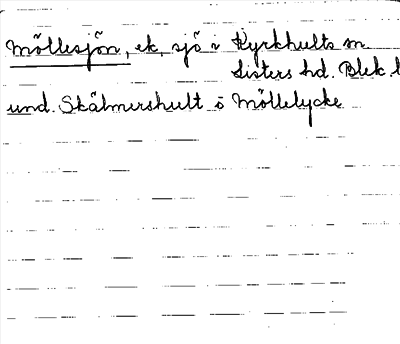 Möllesjön, ek, sjö i Kyrkhults sn.
Listers hd. Blek. l
und. Skälmershult o Möllelycke